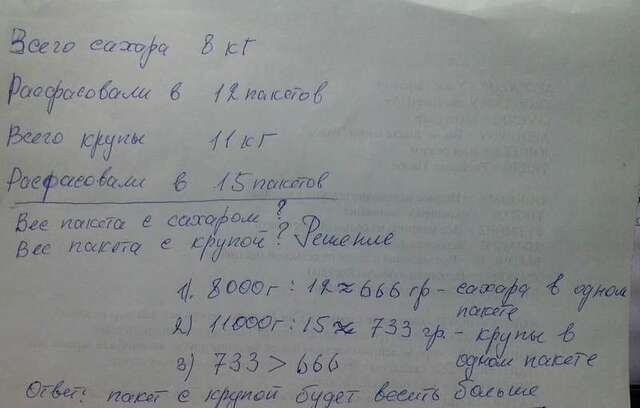 Всего сахара 8 кг
Расфасовали в 12 пакетов
Всего крупы 11 кг
Расфасовали в 15 пакетов
Вес пакета с сахаром?
Вес пакета с крупой? Решение
1). 8000г : 12 ≈ 666 гр - сахара в одном пакете
2) 11000г : 15 ≈ 733 гр. - крупы в одном пакете
3) 733 > 666
Ответ: пакет с крупой будет весить больше